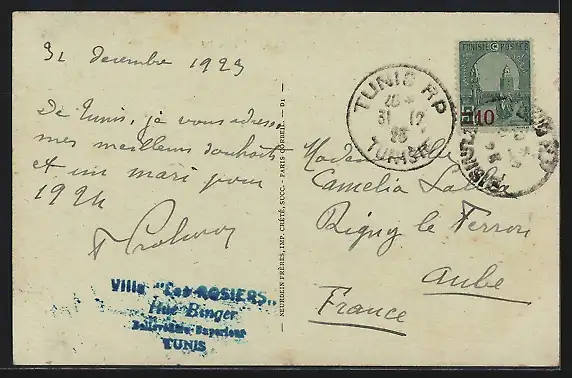 31 decembre 1923
De Tunis, je vous adresse
mes meilleurs souhaits
et un mari pour
1924
Villa "Les ROSIERS"
Rue Binger
Belvédère Superieur
TUNIS
NEURDEIN FRÈRES, IMP. CRÉTÉ, SUCC. - PARIS CORBEIL. - D1 -
TUNIS RP
31 12
23
TUNISIE
TUNISIE POSTES
10
Mademoiselle
Camelia
Rigny le Ferron
Aube
France